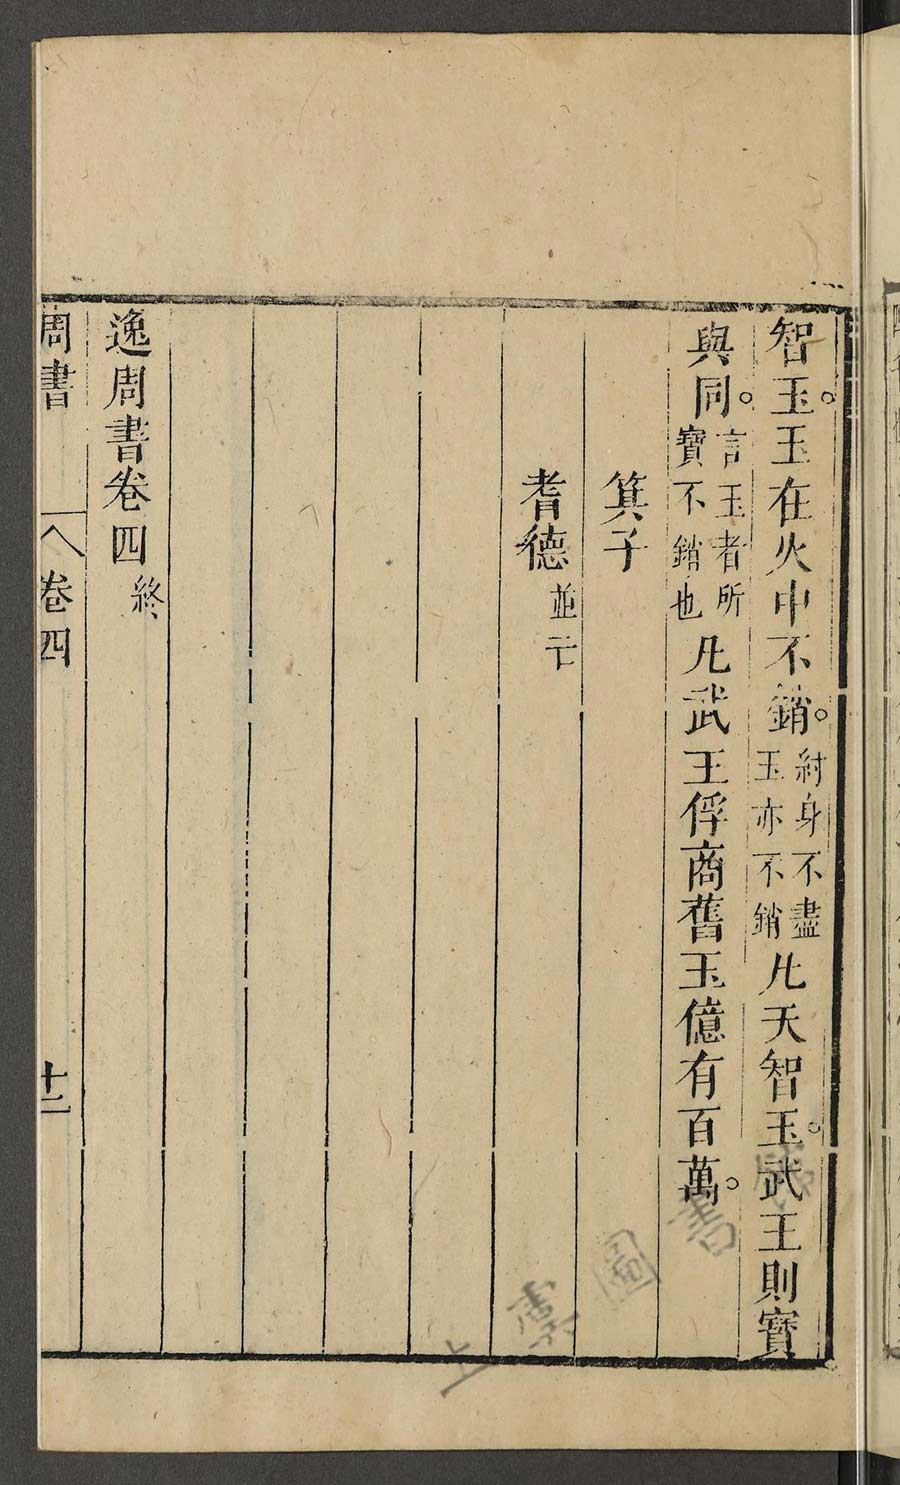 智玉。玉在火中不銷。紂身不盡玉亦不銷凡天智玉。武王則寶
與同。言王者所寶不銷也凡武王俘商舊玉億有百萬。
箕子
耆德並亡
逸周書卷四終
周書 卷四 十二
上虞圖書館